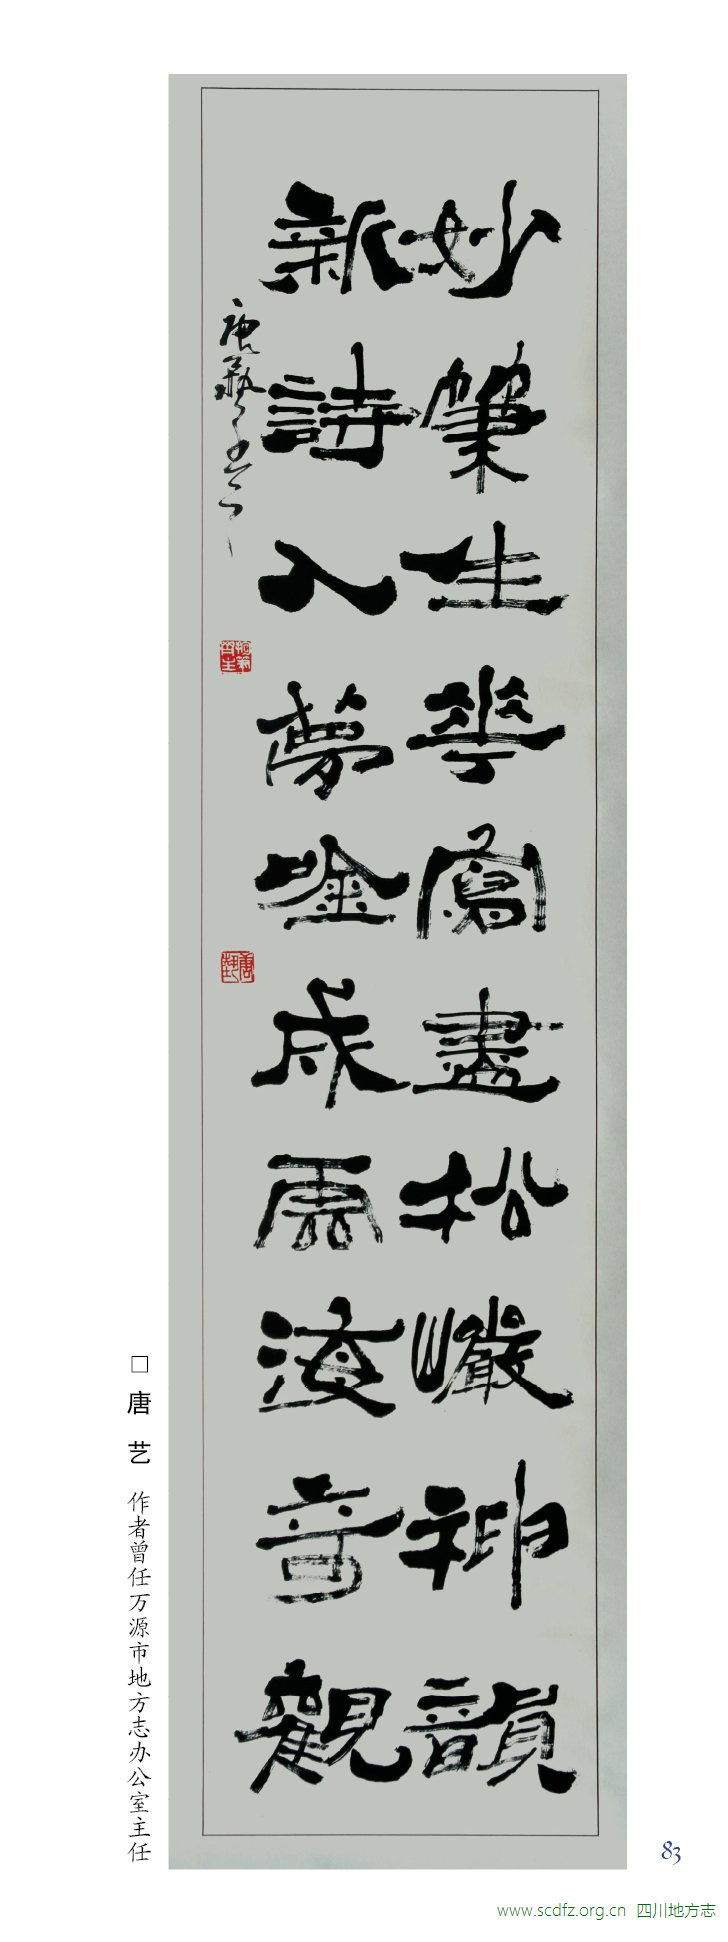 妙筆生花寫盡松巖神韻
新詩入夢唫成雲海奇觀
唐藝
□ 唐 艺 作者曾任万源市地方志办公室主任
83
www.scdfz.org.cn 四川地方志